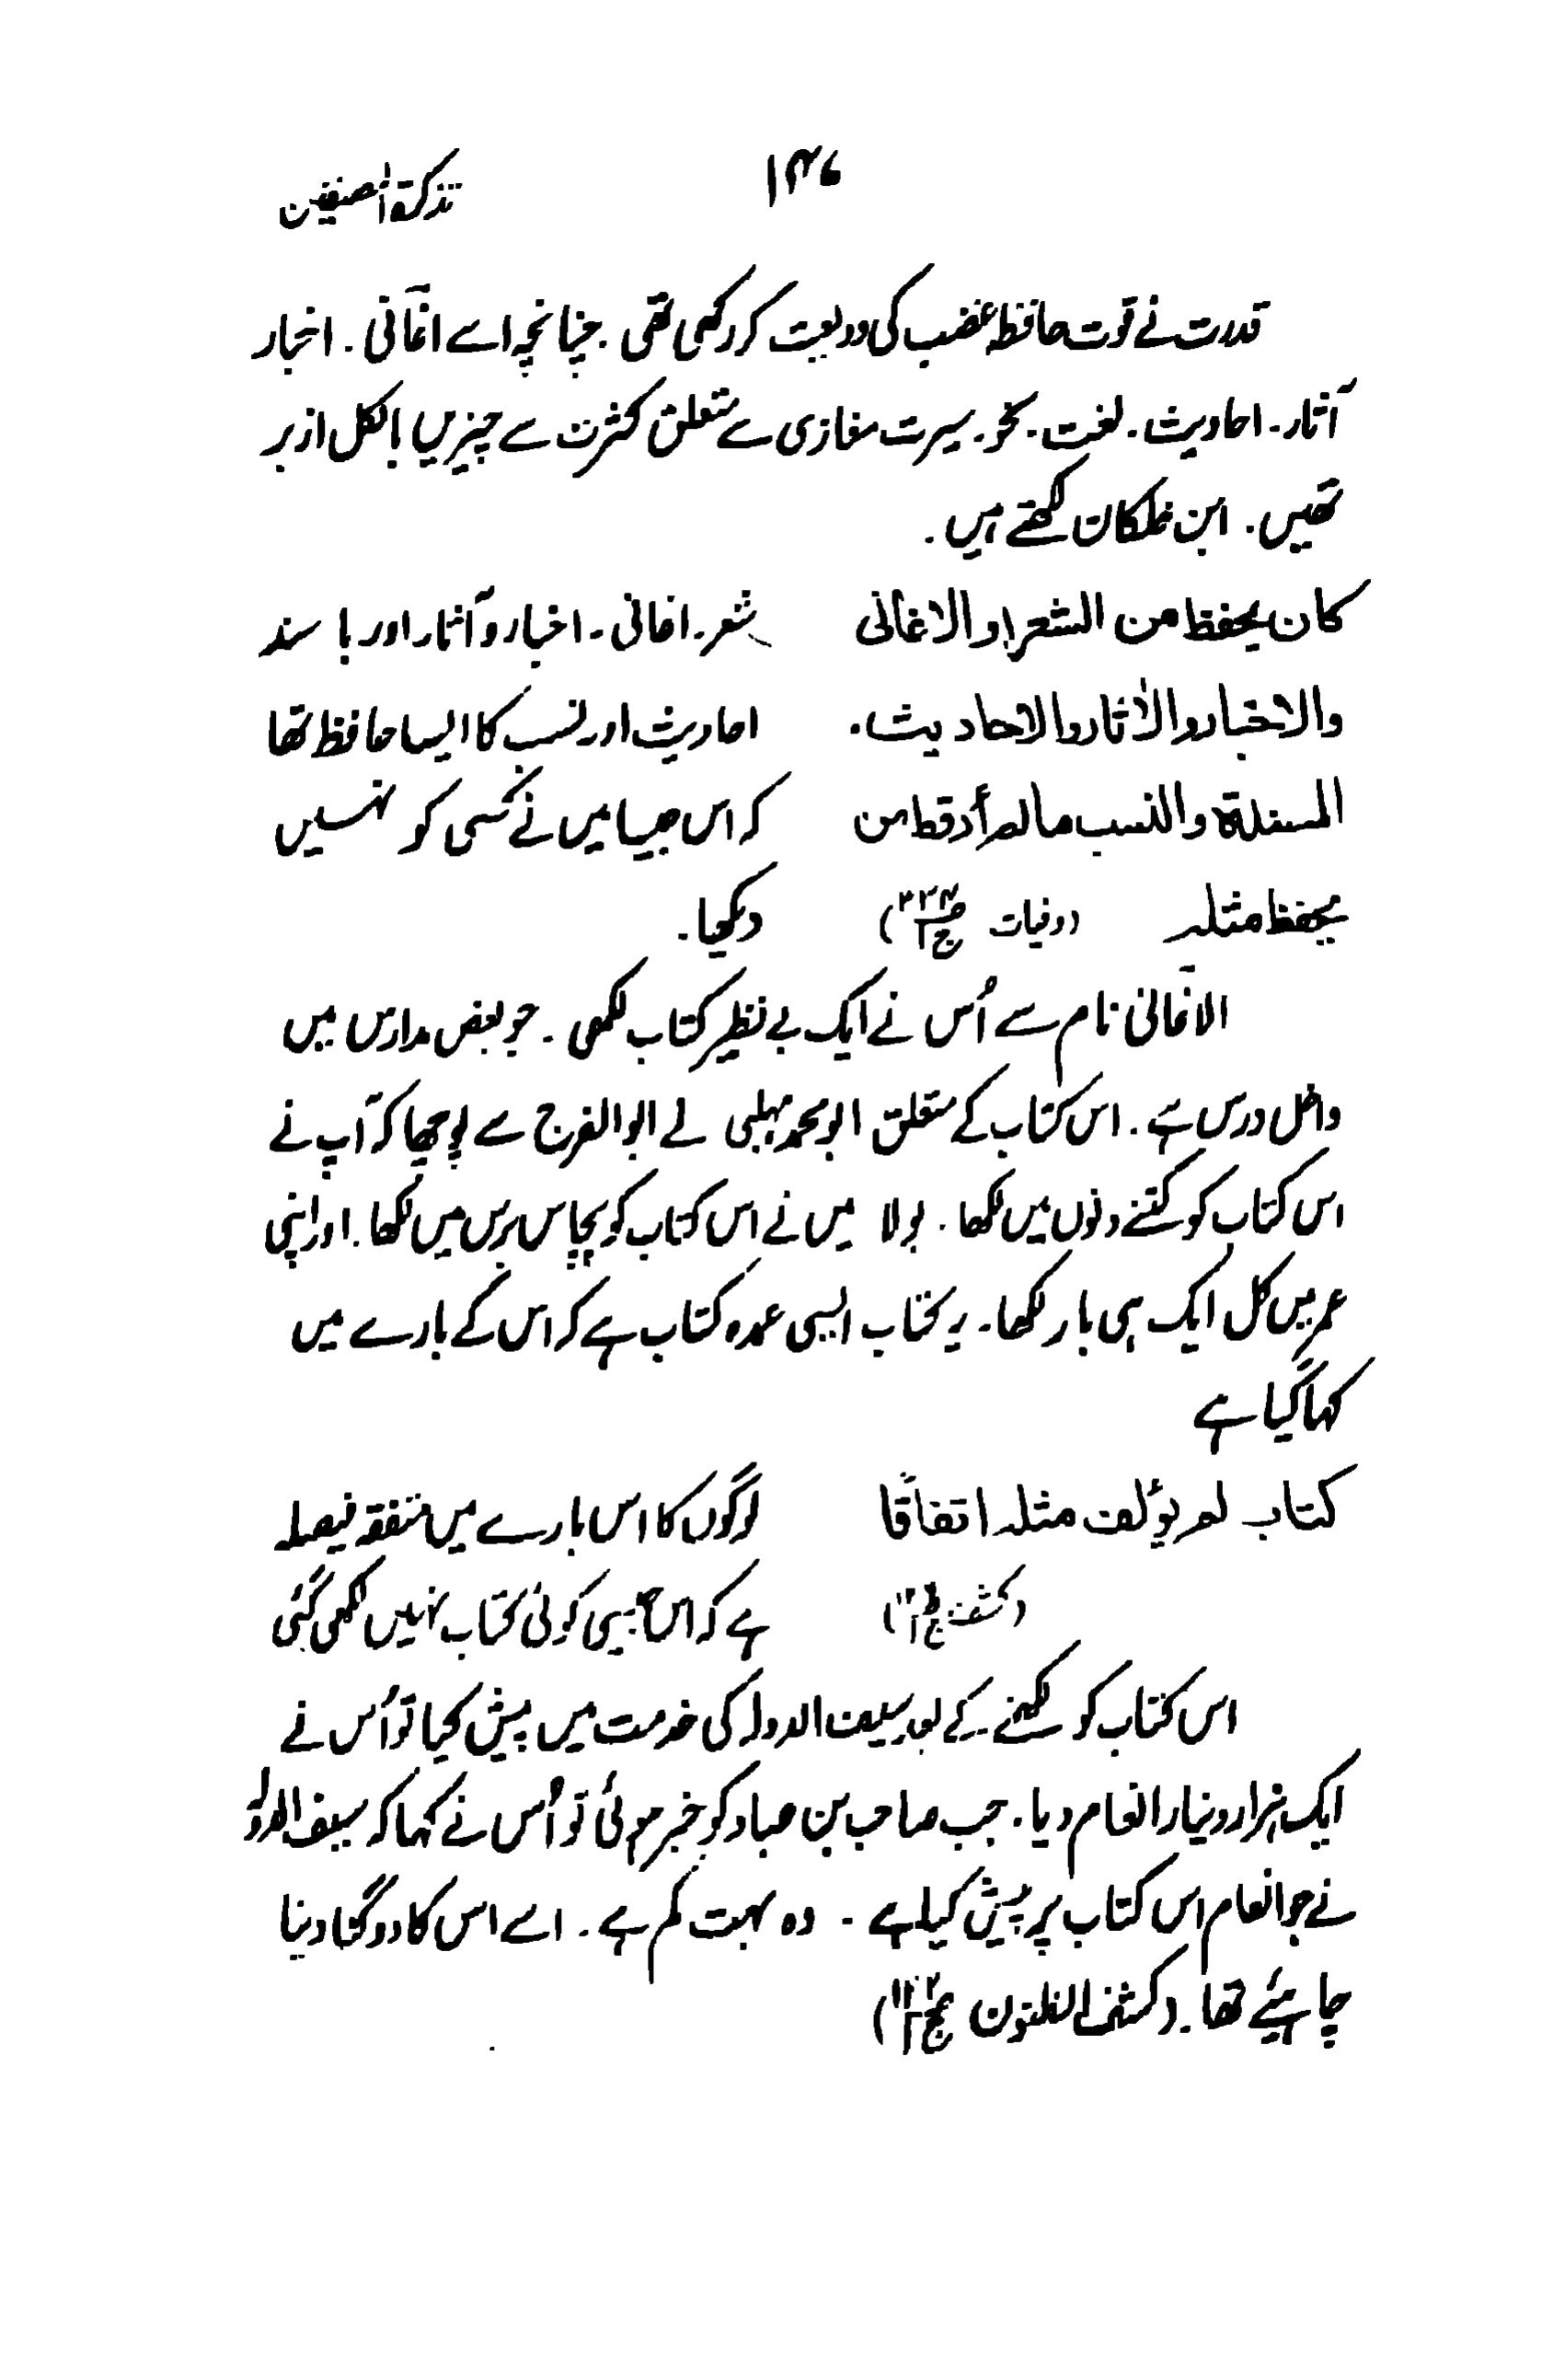 تذکرۃ المصنفین
۱۴۶
قدرت نے قوت حافظہ غضب کی ودیعت کر رکھی تھی۔ چنانچہ اسے اغانی۔ اخبار
آثار۔ احادیث۔ لغت۔ نحو۔ سیرت مغازی سے متعلق کثرت سے چیزیں بالکل ازبر
تھیں۔ ابن خلکان لکھتے ہیں۔
کان یحفظ من الشعر والاغانی
والاخبار والآثار والاحادیث۔
المسندۃ والنسب مالم أر قط من
یحفظ مثلہ (وفیات ج۱)
شعر۔ اغانی۔ اخبار و آثار اور با سند
احادیث اور نسب کا ایسا حافظ تھا
کہ اس جیسا میں نے کسی کو نہیں
دیکھا۔
الاغانی نام سے اُس نے ایک بے نظیر کتاب لکھی۔ جو بعض مدارس میں
داخل درس ہے۔ اس کتاب کے متعلق ابو محمد مہلبی نے ابوالفرج سے پوچھا کہ آپ نے
اس کتاب کو کتنے دنوں میں لکھا۔ بولا میں نے اس کتاب کو پچاس برس میں لکھا۔ اور اپنی
عمر میں کل ایک ہی بار لکھا۔ یہ کتاب ایسی عمدہ کتاب ہے کہ اس کے بارے میں
کہا گیا ہے
کتاب لم یؤلف مثلہ اتفاقًا
(کشف ج۱)
لوگوں کا اس بارے میں متفقہ فیصلہ
ہے کہ اس جیسی کوئی کتاب نہیں لکھی گئی
اس کتاب کو لکھنے کے بعد سیف الدولہ کی خدمت میں پیش کیا تو اُس نے
ایک ہزار دینار انعام دیا۔ جب صاحب بن عباد کو خبر ہوئی تو اُس نے کہا کہ سیف الدولہ
نے جو انعام اس کتاب پر پیش کیا ہے۔ وہ بہت کم ہے۔ اسے اس کا دوگنا دینا
چاہیئے تھا۔ (کشف الظنون ج۱)